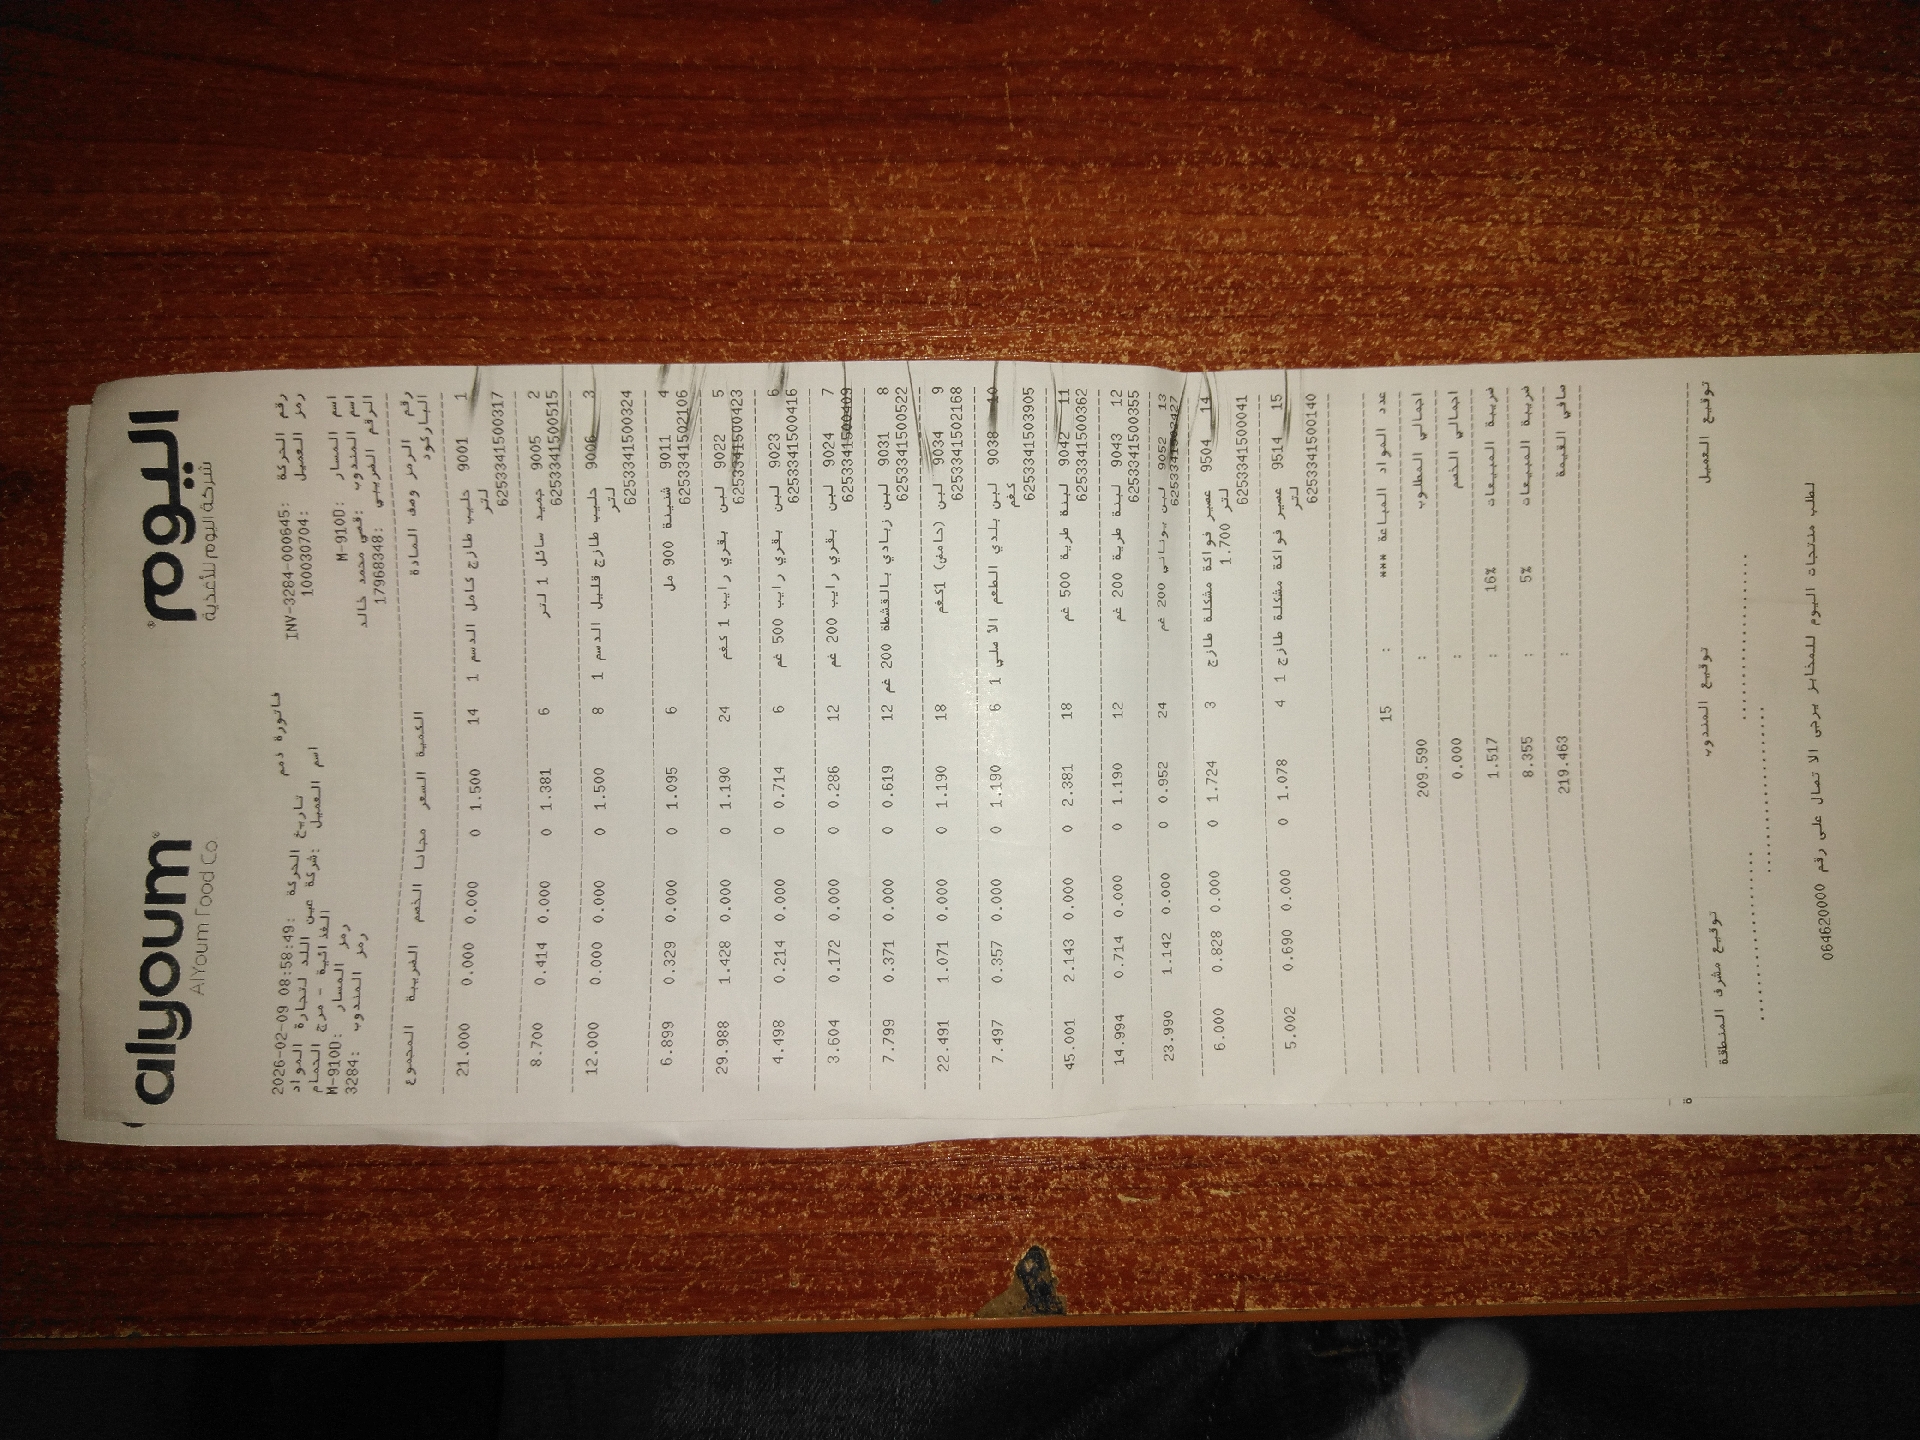 alyoum اليوم
AlYoum Food Co. شركة اليوم للأغذية
فاتورة ذمم
رقم الحركة :INV-3284-000645 تاريخ الحركة :2026-02-09 08:58:49
رمز العميل :100030704 اسم العميل :شركة عين اللد لتجارة المواد الغذائية - مرج الحمام
اسم المسار :M-910D رمز المسار :M-910D
اسم المندوب :قصي محمد خالد رمز المندوب :3284
الرقم الضريبي :17968348
رقم الرمز وصف المادة الكمية السعر مجانا الخصم الضريبة المجموع
الباركود
1 9001 حليب طازج كامل الدسم 1 لتر 14 1.500 0 0.000 0.000 21.000
6253341500317
2 9005 جميد سائل 1 لتر 6 1.381 0 0.000 0.414 8.700
6253341500515
3 9006 حليب طازج قليل الدسم 1 لتر 8 1.500 0 0.000 0.000 12.000
6253341500324
4 9011 شنينة 900 مل 6 1.095 0 0.000 0.329 6.899
6253341502106
5 9022 لبن بقري رايب 1 كغم 24 1.190 0 0.000 1.428 29.988
6253341500423
6 9023 لبن بقري رايب 500 غم 6 0.714 0 0.000 0.214 4.498
6253341500416
7 9024 لبن بقري رايب 200 غم 12 0.286 0 0.000 0.172 3.604
6253341500409
8 9031 لبن زبادي بالقشطة 200 غم 12 0.619 0 0.000 0.371 7.799
6253341500522
9 9034 لبن (حامض) 1كغم 18 1.190 0 0.000 1.071 22.491
6253341502168
10 9038 لبن بلدي الطعم الأصلي 1 كغم 6 1.190 0 0.000 0.357 7.497
6253341503905
11 9042 لبنة طرية 500 غم 18 2.381 0 0.000 2.143 45.001
6253341500362
12 9043 لبنة طرية 200 غم 12 1.190 0 0.000 0.714 14.994
6253341500355
13 9052 لبن يوناني 200 غم 24 0.952 0 0.000 1.142 23.990
6253341502427
14 9504 عصير فواكة مشكلة طازج 1.700 لتر 3 1.724 0 0.000 0.828 6.000
6253341500041
15 9514 عصير فواكة مشكلة طازج 1 لتر 4 1.078 0 0.000 0.690 5.002
6253341500140
عدد المواد المباعة *** : 15
اجمالي المطلوب : 209.590
اجمالي الخصم : 0.000
ضريبة المبيعات 16% : 1.517
ضريبة المبيعات 5% : 8.355
صافي القيمة : 219.463
توقيع العميل توقيع المندوب توقيع مشرف المنطقة
لطلب منتجات اليوم للمخابز يرجى الاتصال على رقم 064620000